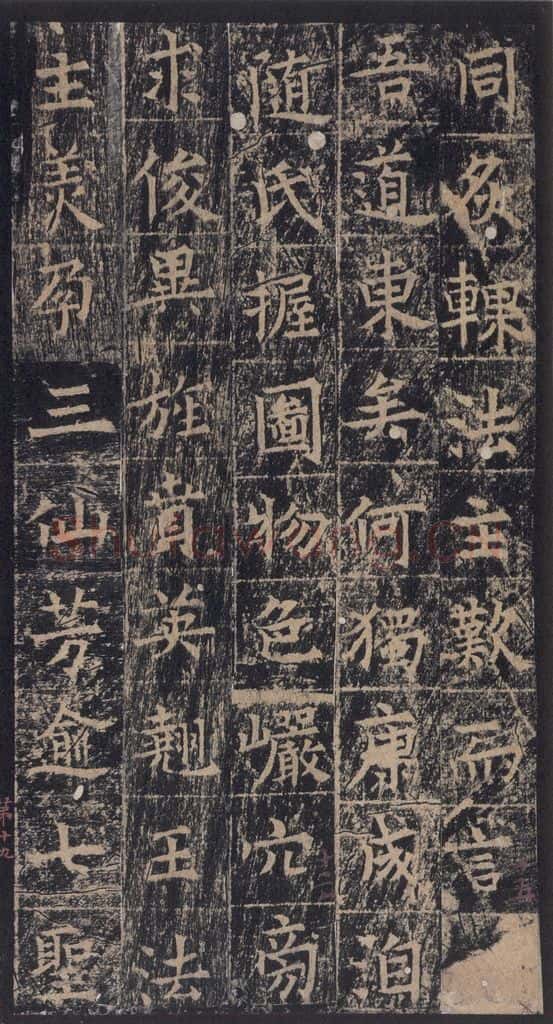 同炙輠法主歎而言
吾道東矣何獨康成洎
随氏握圖物色巖穴旁
求俊異旌賁英翹王法
主美孕三仙芳逾七聖
第十九